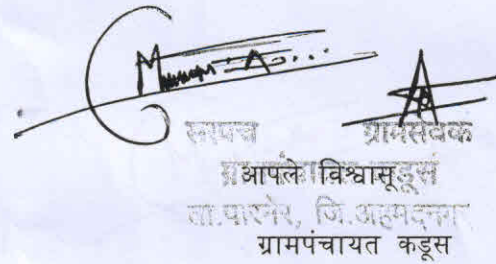 सरपंच ग्रामसेवक
आपले विश्वासू
ता.पारनेर, जि.अहमदनगर
ग्रामपंचायत कडूस